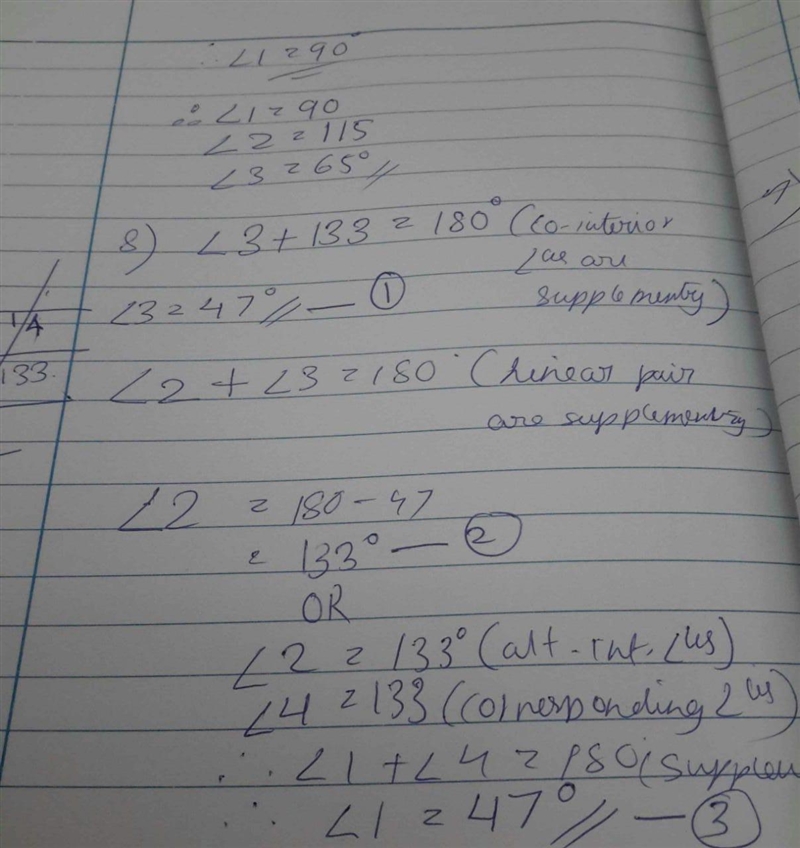 ∴ ∠1 = 90°
∴ ∠1 = 90
∠2 = 115
∠3 = 65° //
8) ∠3 + 133 = 180° (co-interior
∠les are
supplementy)
∠3 = 47° // — ①
1/4
133.
∠2 + ∠3 = 180° (Linear pair
are supplementry)
∠2 = 180 - 47
= 133° — ②
OR
∠2 = 133° (alt-int. ∠les)
∠4 = 133° (corresponding ∠les)
∴ ∠1 + ∠4 = 180 (supplem
∴ ∠1 = 47° // — ③